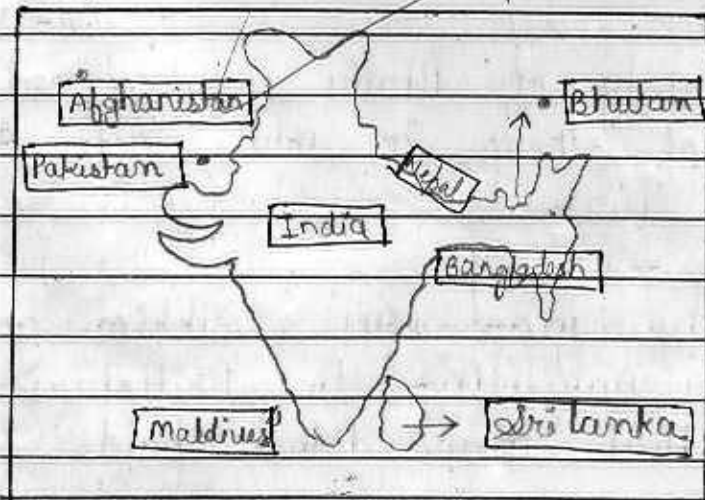 Afghanistan
Bhutan
Pakistan
Nepal
India
Bangladesh
Maldives
Sri lanka